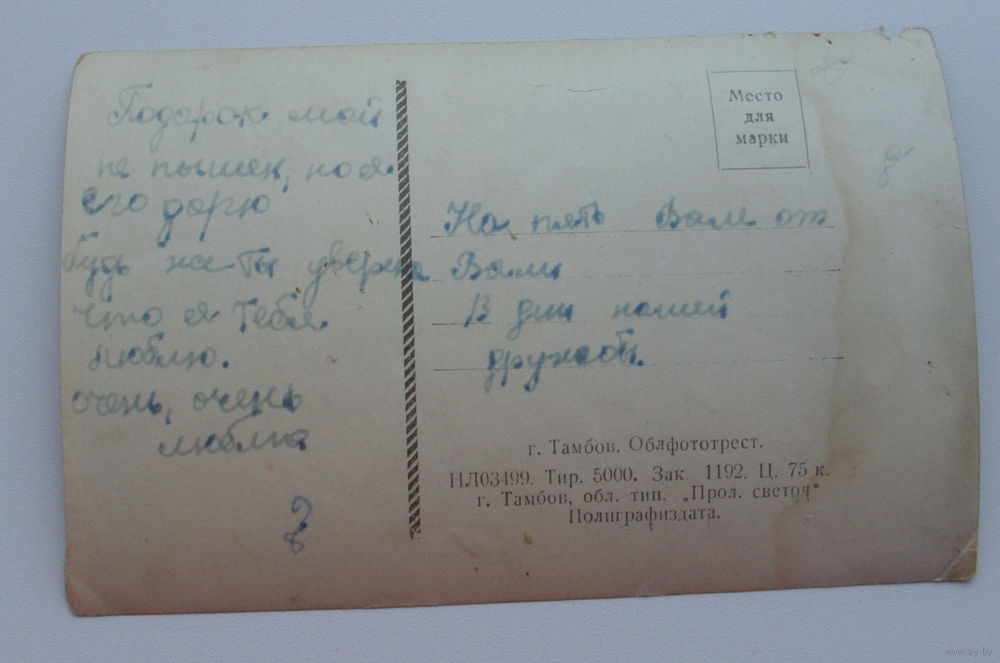 Подарок мой
не пышен, но я
его дарю
будь же ты уверена
что я тебя
люблю.
очень, очень
люблю
Место
для
марки
На пять Вам от
Вали
В дни нашей
дружбы.
г. Тамбов. Облфототрест.
НЛ03499. Тир. 5000. Зак. 1192. Ц. 75 к.
г. Тамбов, обл. тип. „Прол. светоч“
Полиграфиздата.
www.ay.by